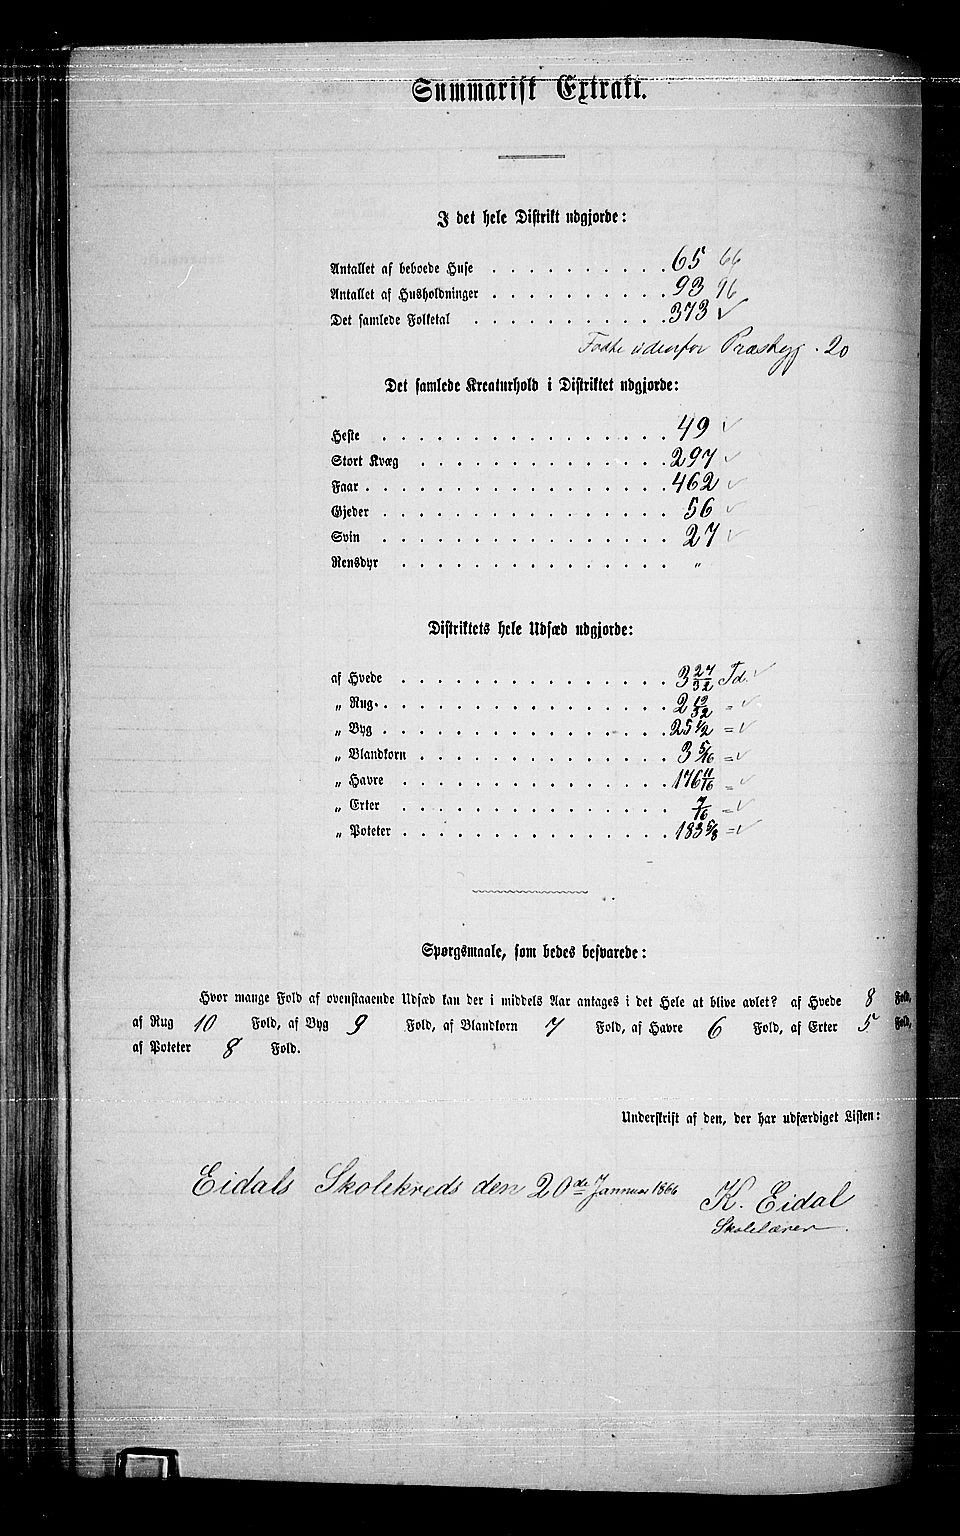 Summarisk Extrakt.
I det hele Distrikt udgjorde:
Antallet af beboede Huse . . . . . . . . . . 65 66
Antallet af Husholdninger . . . . . . . . . . 93 96
Det samlede Folketal . . . . . . . . . . . 373 ✓
Fødte udenfor Præstegj. 20
Det samlede Kreaturhold i Distriktet udgjorde:
Heste . . . . . . . . . . . . . . . . 49 ✓
Stort Kvæg . . . . . . . . . . . . . . 297 ✓
Faar . . . . . . . . . . . . . . . . . 462 ✓
Gjeder . . . . . . . . . . . . . . . . 56 ✓
Svin . . . . . . . . . . . . . . . . 27 ✓
Rensdyr . . . . . . . . . . . . . . . "
Distriktets hele Udsæd udgjorde:
af Hvede . . . . . . . . . . . . . . . 3 27/32 Td. ✓
„ Rug . . . . . . . . . . . . . . . . 2 /32 = ✓
„ Byg . . . . . . . . . . . . . . . . 25 1/2 = ✓
„ Blandkorn . . . . . . . . . . . . . . 3 5/16 = ✓
„ Havre . . . . . . . . . . . . . . . 176 11/16 = ✓
„ Erter . . . . . . . . . . . . . . . 7/16 = ✓
„ Poteter . . . . . . . . . . . . . . . 183 5/8 = ✓
Spørgsmaale, som bedes besvarede:
Hvor mange Fold af ovenstaaende Udsæd kan der i middels Aar antages i det Hele at blive avlet? af Hvede 8 Fold,
af Rug 10 Fold, af Byg 9 Fold, af Blandkorn 7 Fold, af Havre 6 Fold, af Erter 5 Fold,
af Poteter 8 Fold.
Underskrift af den, der har udfærdiget Listen:
Eidals Skolekreds den 20de Januar 1866
K. Eidal
Skolelærer.